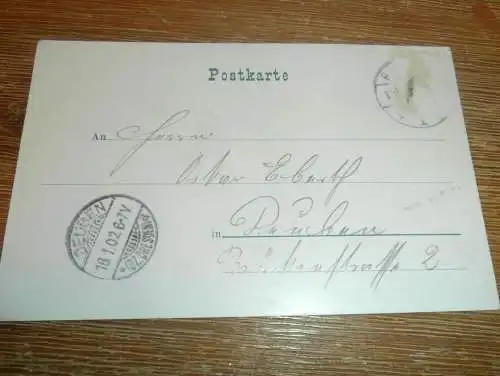 Postkarte
An Herrn
Oskar Eberth
in Deuben
Brückenstraße 2
DEUBEN
18.1.02.6-7V